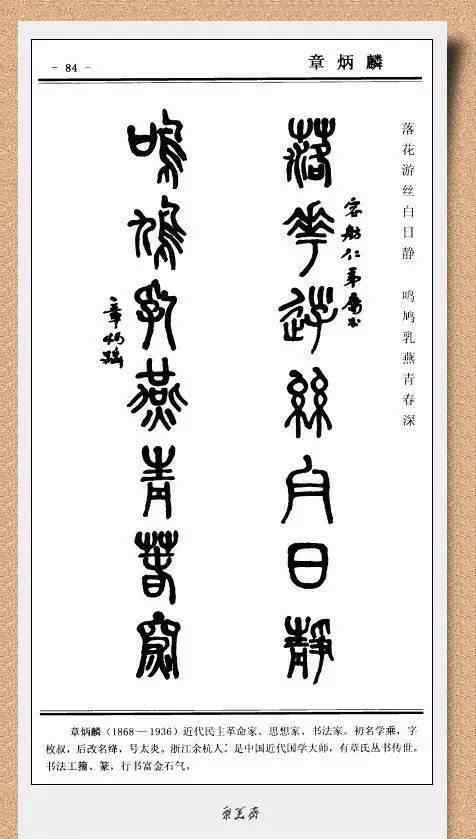 - 84 -
章炳麟
落花游丝白日静 鸣鸠乳燕青春深
落花游絲白日靜
鳴鳩乳燕青春深
章炳麟
章炳麟（1868—1936）近代民主革命家、思想家、书法家。初名学乘，字
枚叔，后改名绛，号太炎。浙江余杭人。是中国近代国学大师，有章氏丛书传世。
书法工籀、篆，行书富金石气。